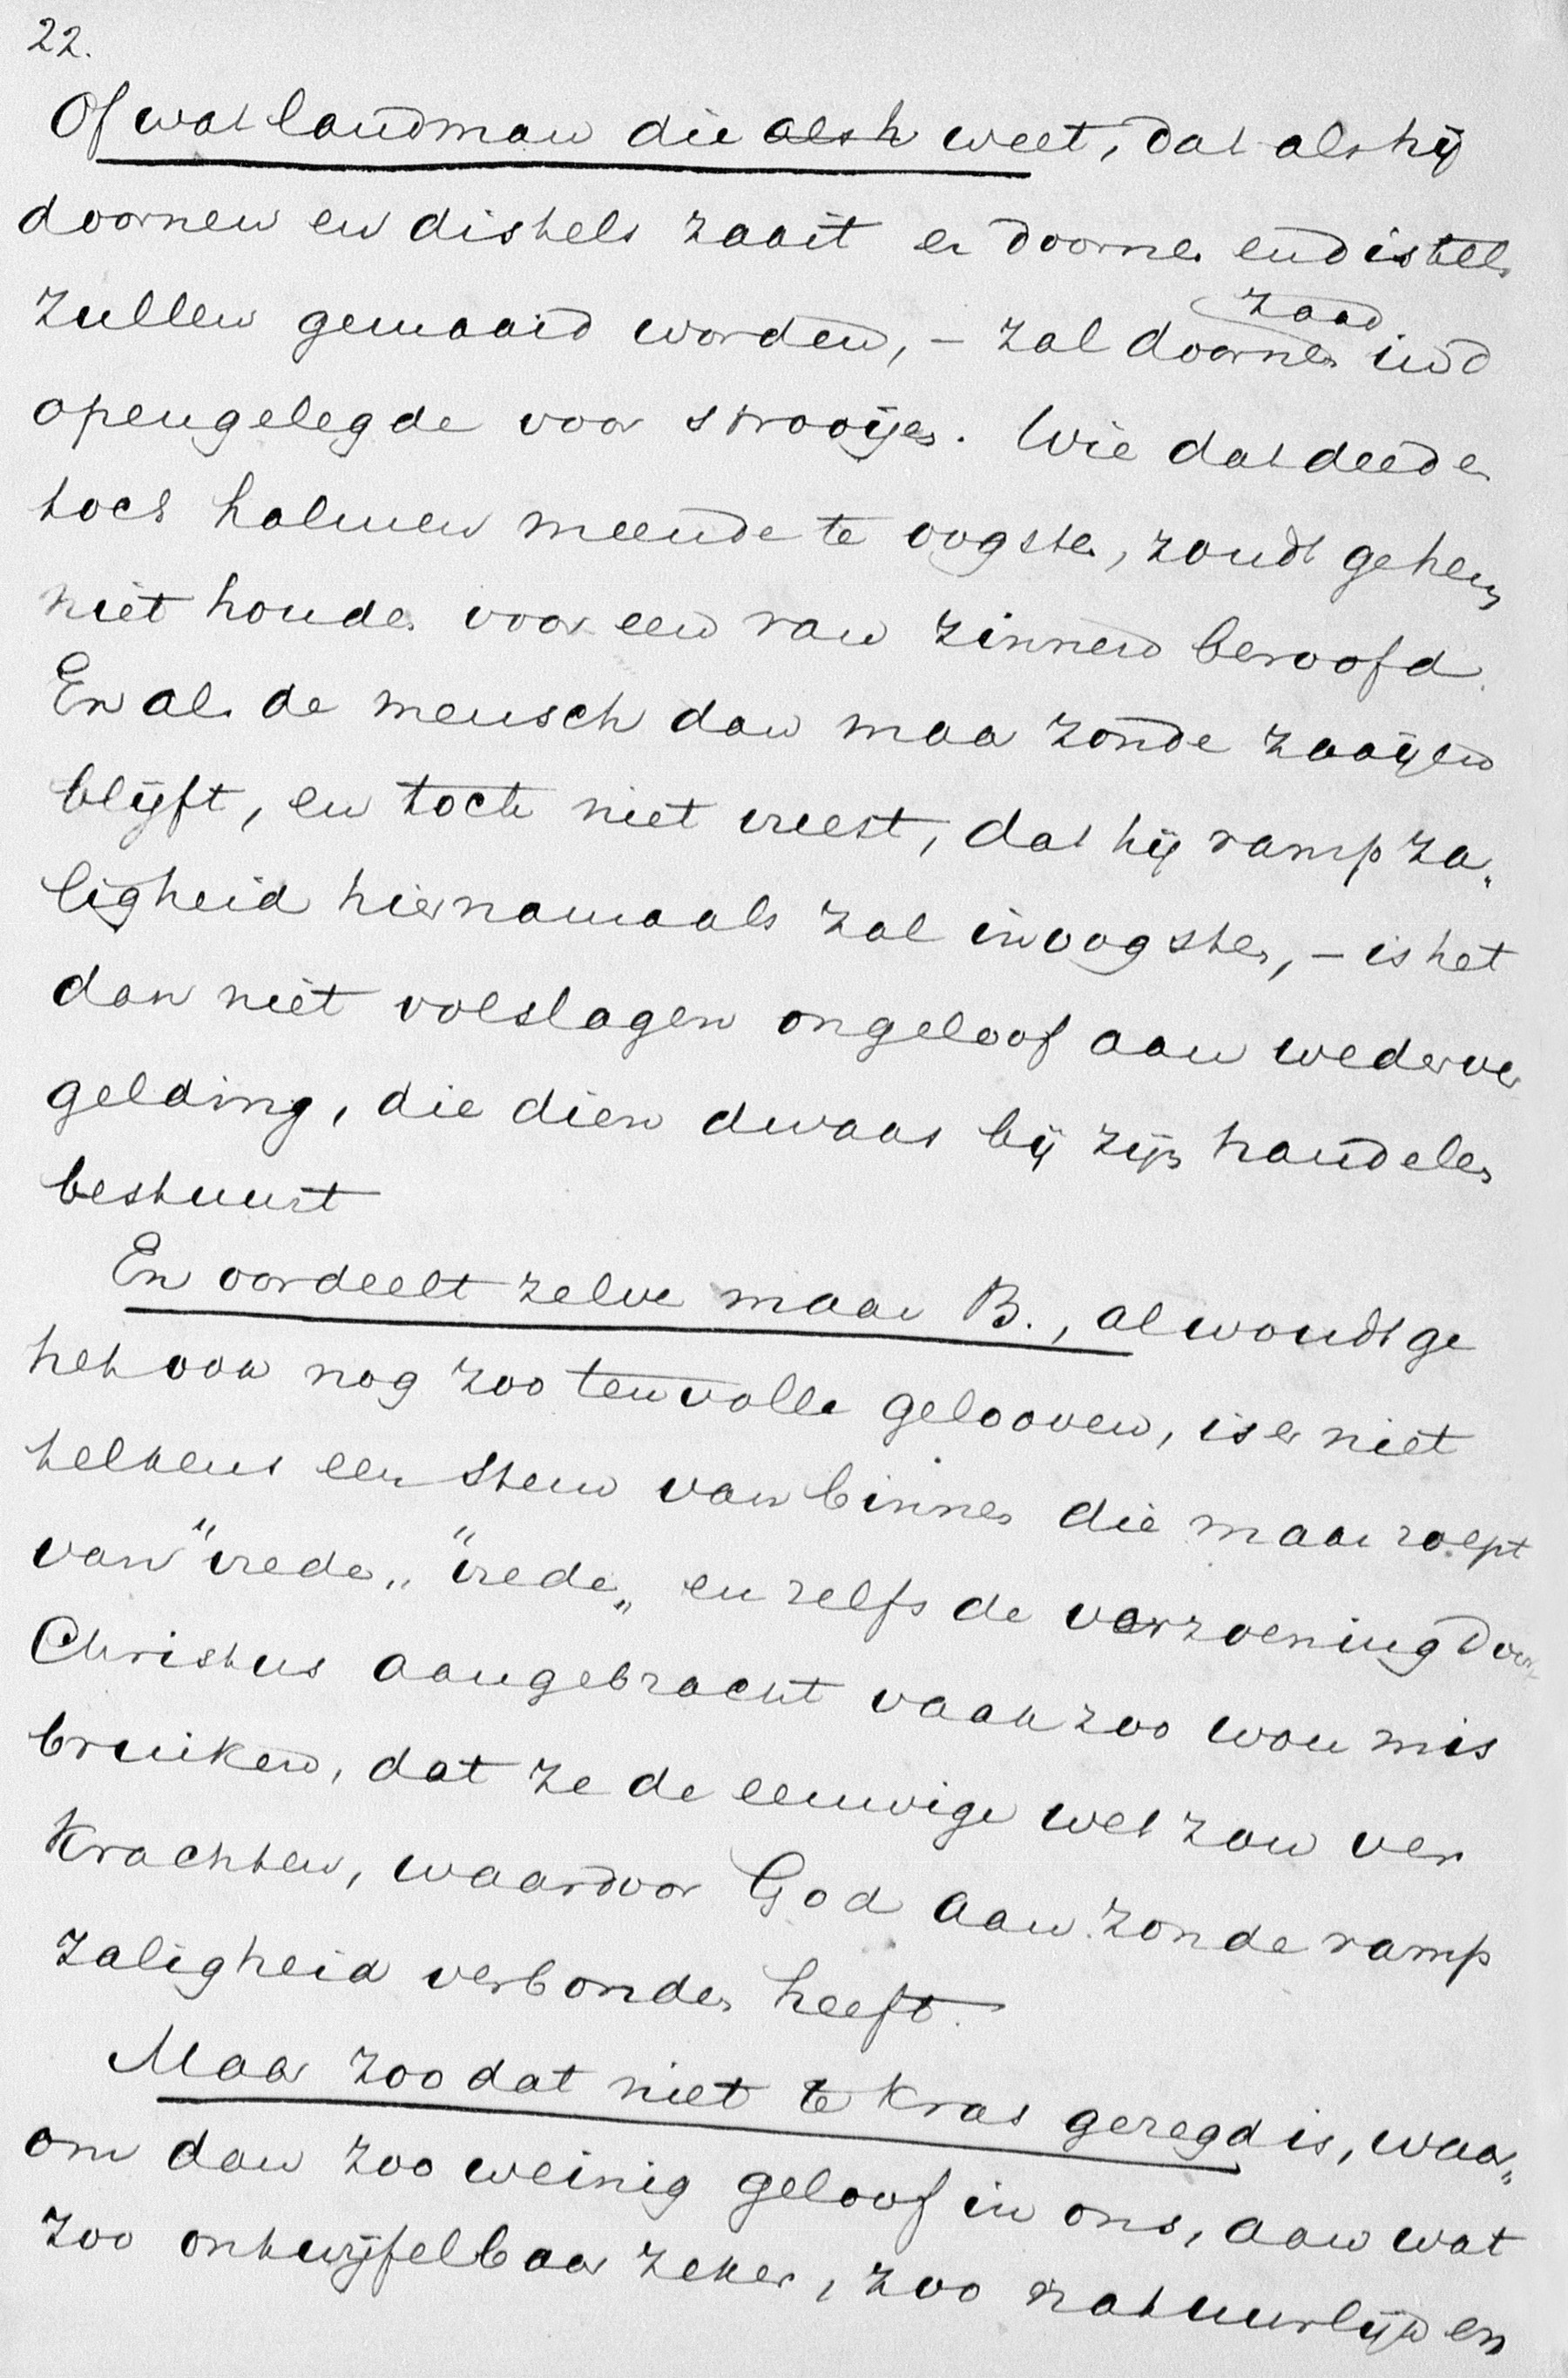 22.
Of wat landman die ~~als h~~ weet, dat als hij
doornen en distels zaait er doornen en distels
zullen gemaaid worden, – zal doornenzaad in d
opengelegde voor strooijen. Wie dat deed en
toch halmen meende te oogsten, zoudt ge hem
niet houden voor een van zinnen beroofd.
En als de mensch dan maar zonde zaaijen
blijft, en toch niet vreest, dat hij rampza„
ligheid hiernamaals zal inoogsten, – is het
dan niet volslagen ongeloof aan wederver
gelding, die dien dwaas bij zijn handelen
bestuurt
En oordeelt zelve maar B., al woudt ge
het ook nog zoo ten volle gelooven, is er niet
telkens een stem van binnen die maar roept
van "vrede„ "vrede„ en zelfs de verzoening door
Christus aangebracht vaak zoo wou mis
bruiken, dat ze de eeuwige wet zou ver
krachten, waardoor God aan zonde ramp
zaligheid verbonden heeft.
Maar zoo dat niet te kras gezegd is, waar„
om dan zoo weinig geloof in ons, aan wat
zoo ontwijfelbaar zeker, zoo natuurlijk en